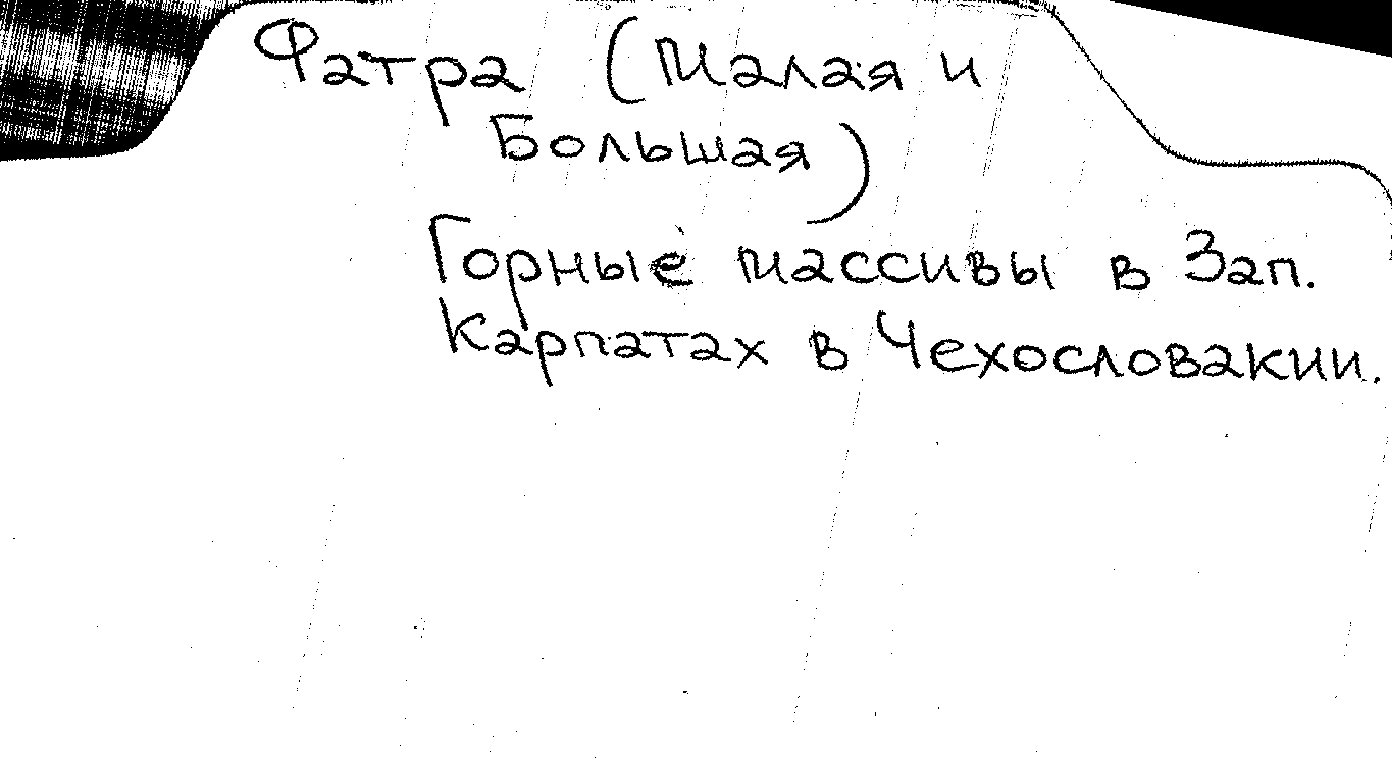 Фатра (Малая и
Большая)
Горные массивы в Зап.
Карпатах в Чехословакии.